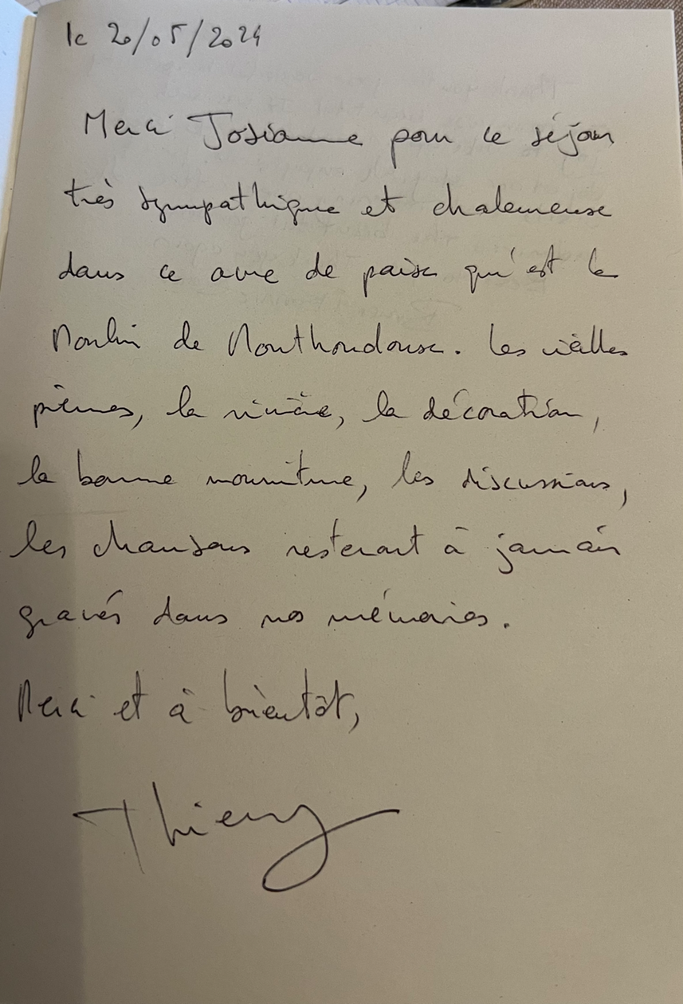 le 20/05/2024
Merci Josianne pour ce séjour
très sympathique et chaleureuse
dans ce avre de paix qu'est le
Moulin de
Les vieilles
pierres, la rivière, la décoration,
la bonne nourriture, les discussions,
les chansons resteront à jamais
gravés dans nos mémoires.
Merci et à bientôt,
Thierry